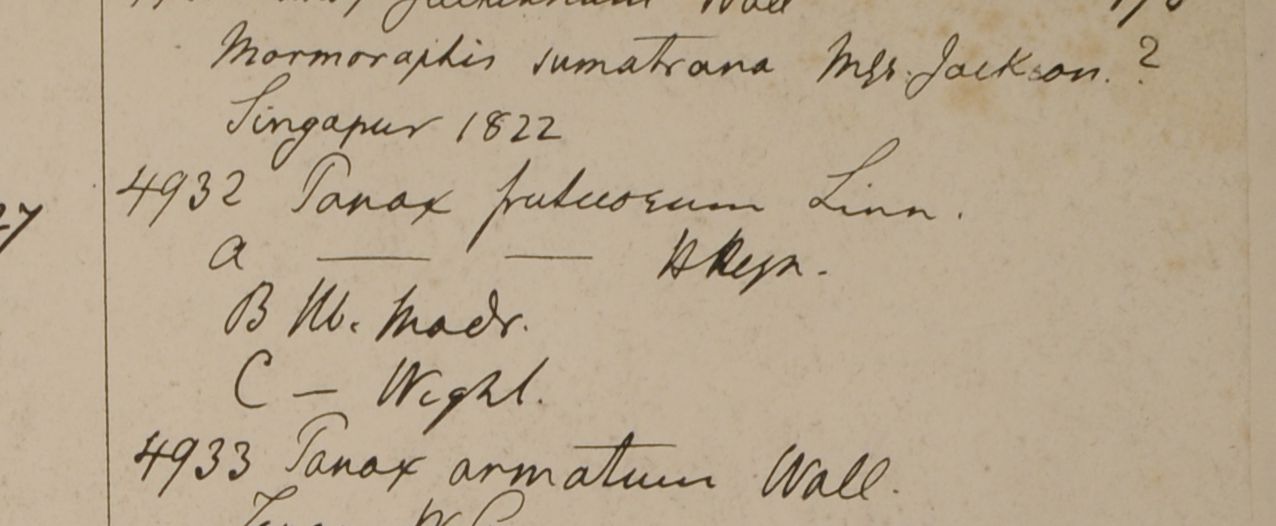 Wall
Mormoraphis sumatrana Mss. Jackson. ?
Singapur 1822
4932 Panax fruticosum Linn.
a — —
B Hb. Madr.
C — Wight.
4933 Panax armatum Wall.